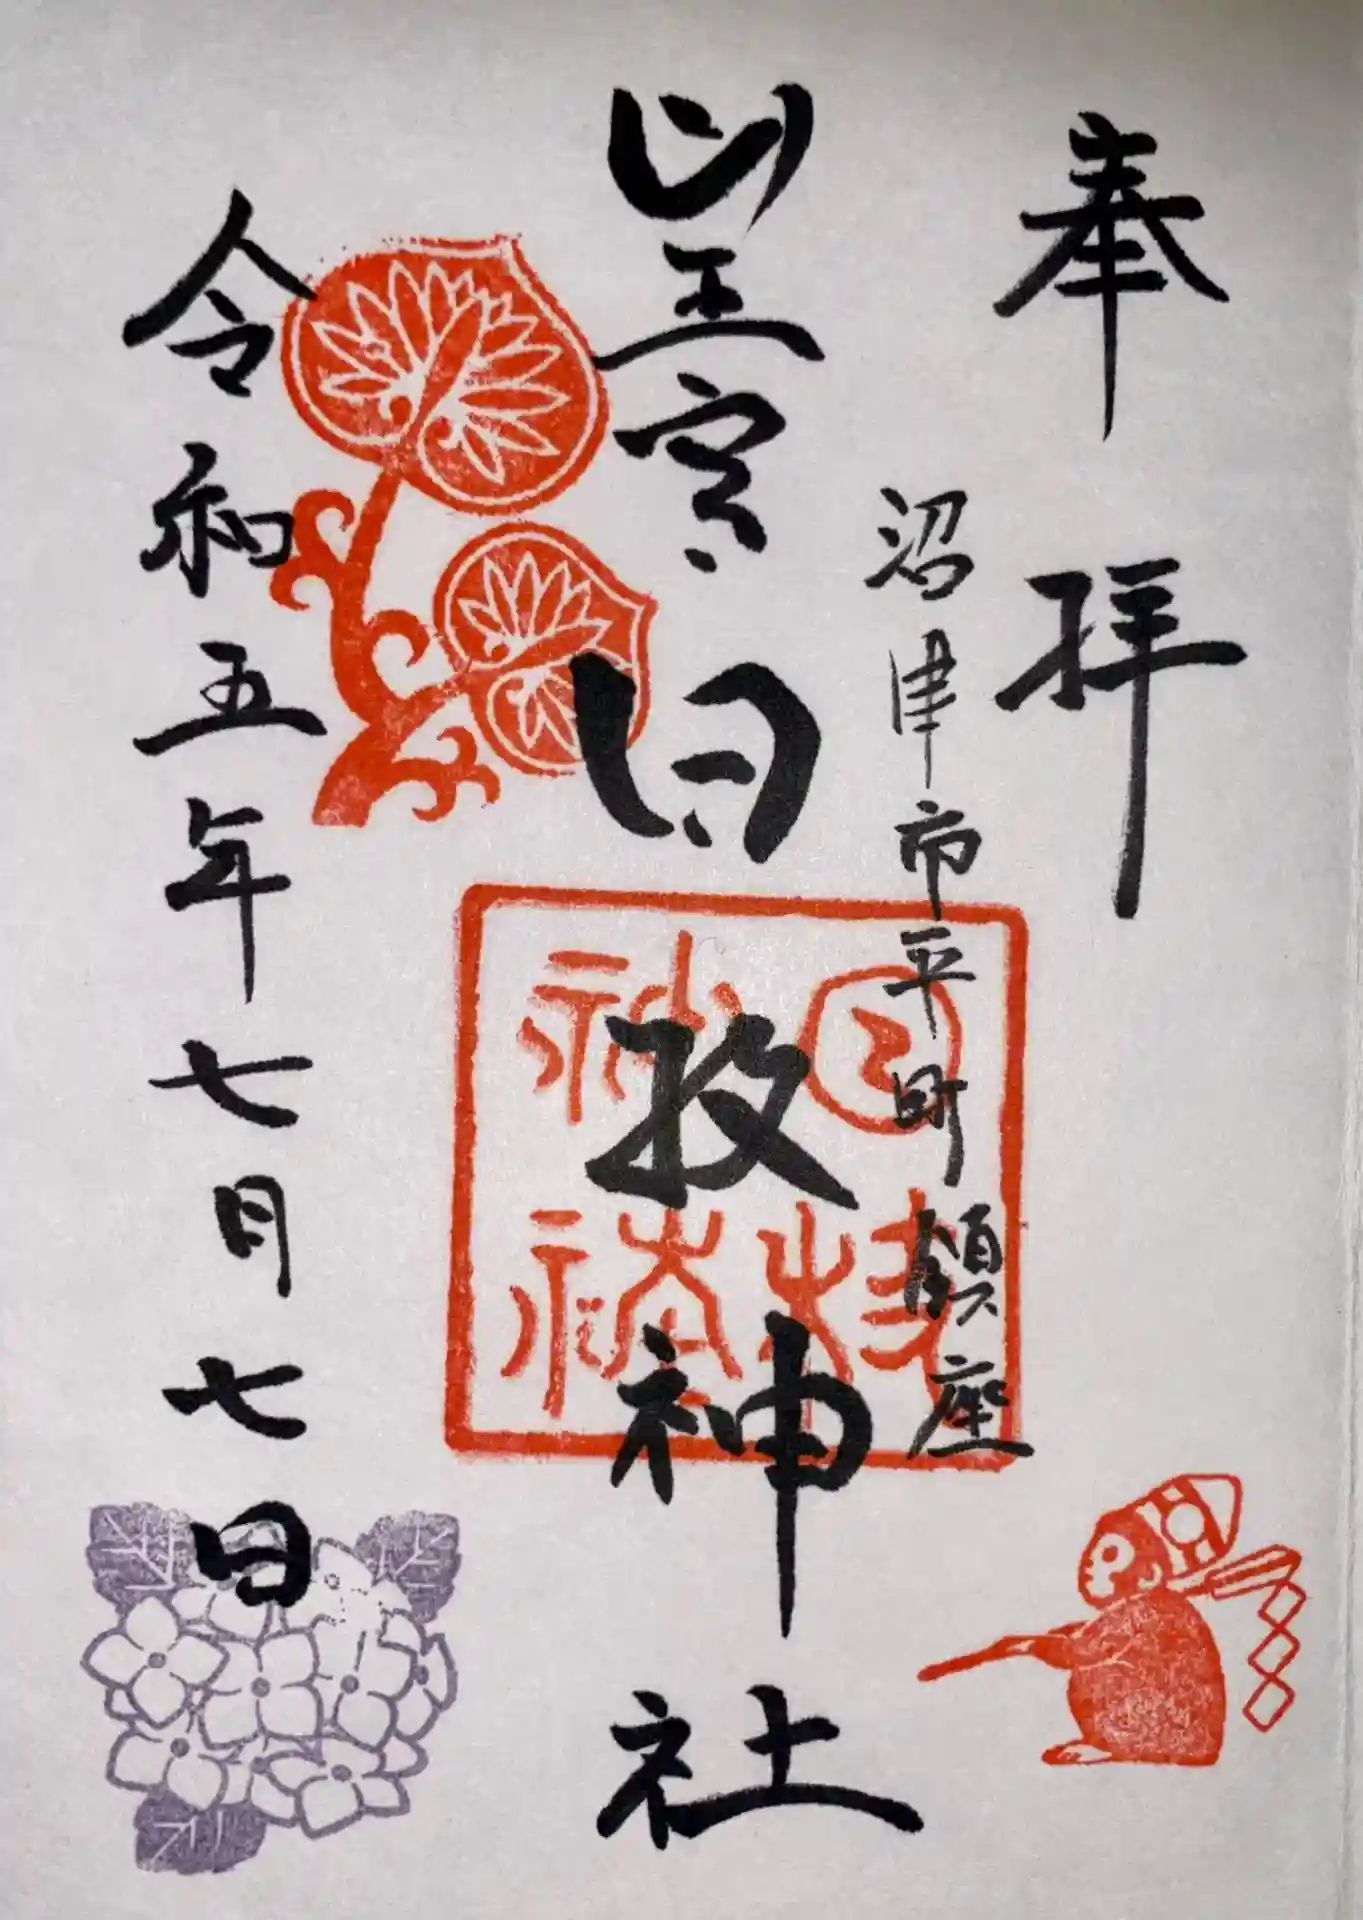 奉拝
沼津市平町鎮座
山王宮日枝神社
日枝
神社
令和五年七月七日